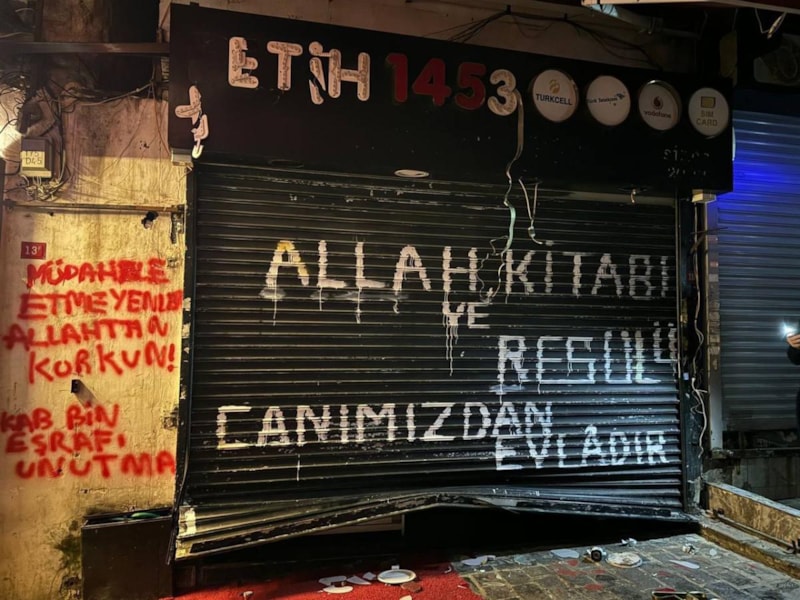 ETİH 1453
TURKCELL
vodafone
SIM
CARD
13
MÜDAHELE
ETMEYENLER
ALLAHTAN
KORKUN!
KAB BİN
EŞRAFI
UNUTMA
ALLAH, KİTABI
VE
RESÜLÜ
CANIMIZDAN
EVLÂDIR